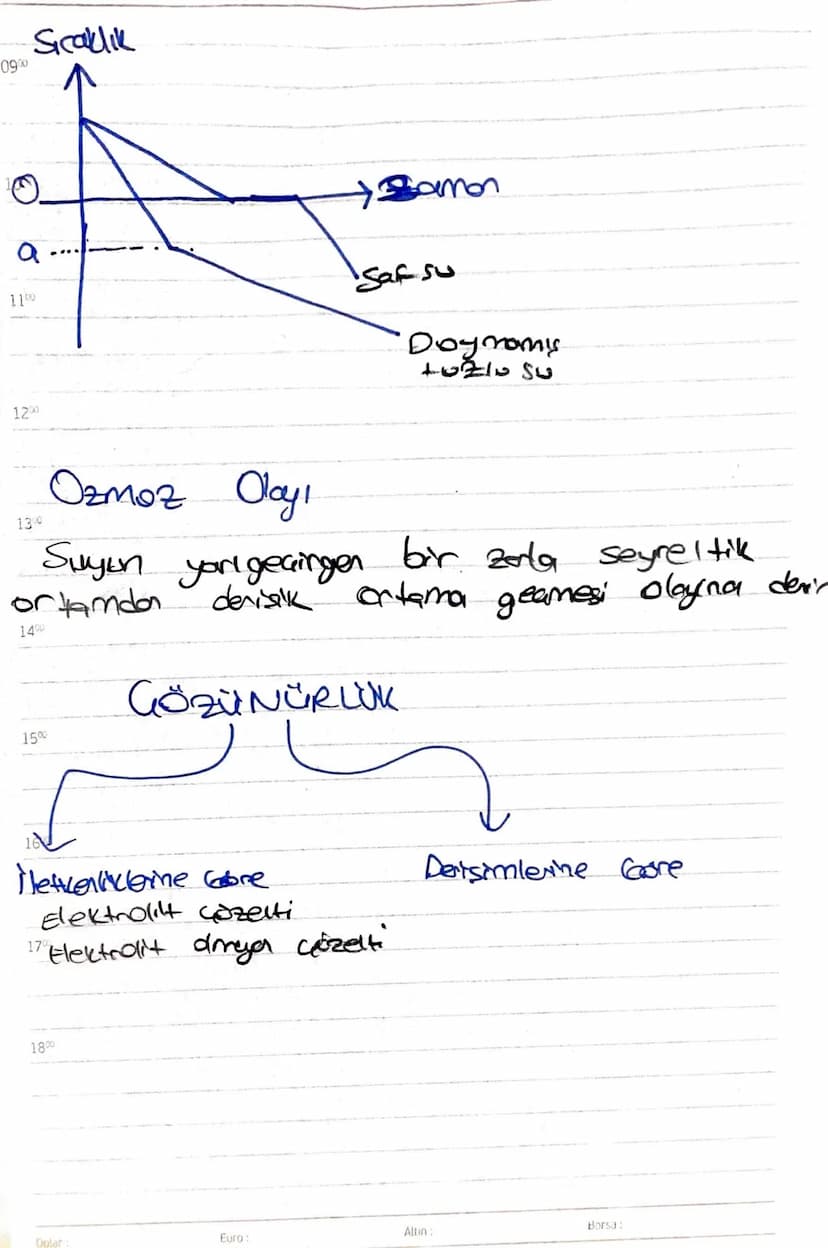 Sıcaklık
09⁰⁰
0
Zaman
a
Saf su
11⁰⁰
Doymamış
tuzlu su
12⁰⁰
Ozmoz Olayı
13⁰⁰
Suyun yarı geçirgen bir zarla seyreltik
ortamdan derişik ortama geçmesi olayına denir
14⁰⁰
ÇÖZÜNÜRLÜK
15⁰⁰
16⁰⁰
İletkenliklerine Göre
Derişimlerine Göre
Elektrolit çözelti
17⁰⁰
Elektrolit olmayan çözelti
18⁰⁰
Dolar :
Euro :
Altın :
Borsa :